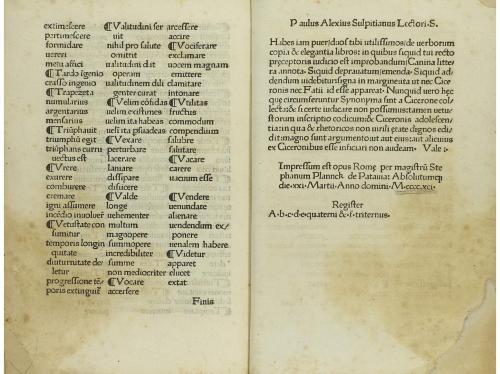 extimescere
pertimescere
formidare
uereri
metu affici
¶ Tardo ĩgenio
crasso ingenio
¶ Trapezeta
numularius
argentarius
mensarius
¶ Triũphauit
triumphũ egit
triũphans curru
uectus est
¶ Vrere
exurere
comburere
cremare
igni assumere
incẽdio inuoluer
¶ Vetustate con
sumitur
temporis longin
quitate
diuturnitate de
letur
progressione tẽ
poris extinguit
¶ Valitudini ser
uit
nihil pro salute
omittit
ualitudini dat
operam
ualitudinem dili
genter curat
¶ Velim cõfidas
uelim existimes
uelim ita habeas
ueli ita psuadeas
¶ Vexare
perturbare
lacerare
laniare
diuexare
diiicere
¶ Valde
longe
uehementer
multum
magnopere
summopere
incredibiliter
summe
non mediocriter
¶ Vocare
accersere
arcessere
accire
¶ Vociferare
exclamare
uocem magnam
emittere
clamitare
intonare
¶ Vtilitas
fructus
commodum
compendium
salubre
salutare
¶ Vacare
carere
uacuum esse
¶ Vendere
uenundare
alienare
uendendum ex/
ponere
uenalem habere
¶ Videtur
apparet
elucet
extat
Finis
Paulus Alexius Sulpitianus Lectori·S.
Habes iam pueri duos tibi utilissimos: de uerborum
copia & elegantia libros: in quibus siquid tui recto
præceptoris iudicio est improbandum: Canina litte
ra annota. Siquid deprauatum: emenda. Siquid ad
dendum uidebitur: signa in margine: ita ut nec Cice
ronis nec Fatii id esse appareat. Nunquid uero hęc
quę circumferuntur Synonyma sint a Cicerone col
lecta: & si certe iudicare non possumus: tamen uetu/
storum inscriptio codicum:& Ciceronis adolescen/
tia: in qua & rhetoricos non uirili ętate dignos edi/
dit: magno sunt argumento: ut aut eius: aut alicuius
ex Ciceronibus esse inficiari non audeam. Vale :·
Impressum est opus Romę per magistrũ Ste
phanum Plannck de Patauia: Absolutumq
die·xxi·Martii·Anno domini·M·cccc·xci·
Register
A·b·c·d·e·quaterni &·f·triternus.